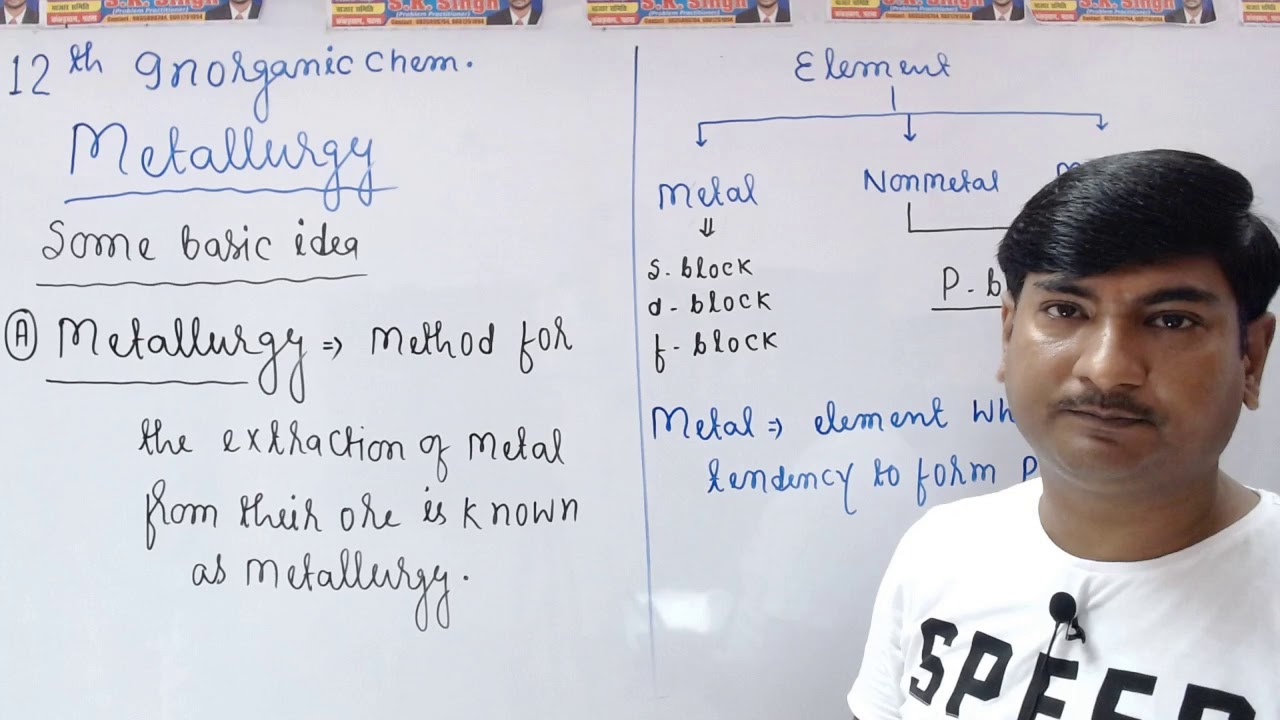 S.K. Singh
(Problem Practitioner)
बाजार समिति
12th Inorganic chem.
Metallurgy
Some basic idea
Ⓐ Metallurgy ⇒ Method for
the extraction of Metal
from their ore is known
as Metallurgy.
Element
Metal Nonmetal
⇓
s. block
d- block
f- block
P- b
Metal ⇒ element Wh
tendency to form P
SPEED